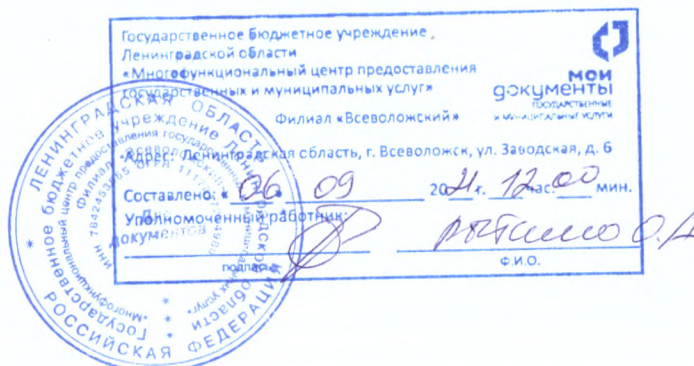 Государственное бюджетное учреждение
Ленинградской области
«Многофункциональный центр предоставления
государственных и муниципальных услуг»
Филиал «Всеволожский»
мои
документы
ГОСУДАРСТВЕННЫЕ
И МУНИЦИПАЛЬНЫЕ УСЛУГИ
Адрес: Ленинградская область, г. Всеволожск, ул. Заводская, д. 6
Составлено: « 06 » 09 2021 г. 12 час. 00 мин.
Уполномоченный работник:
подпись
Ф.И.О.
ЛЕНИНГРАДСКАЯ ОБЛАСТЬ
РОССИЙСКАЯ ФЕДЕРАЦИЯ
Государственное бюджетное учреждение Ленинградской области
«Многофункциональный центр предоставления государственных и муниципальных услуг»
Филиал «Всеволожский»
ИНН 7842453865 ОГРН
Для
документов